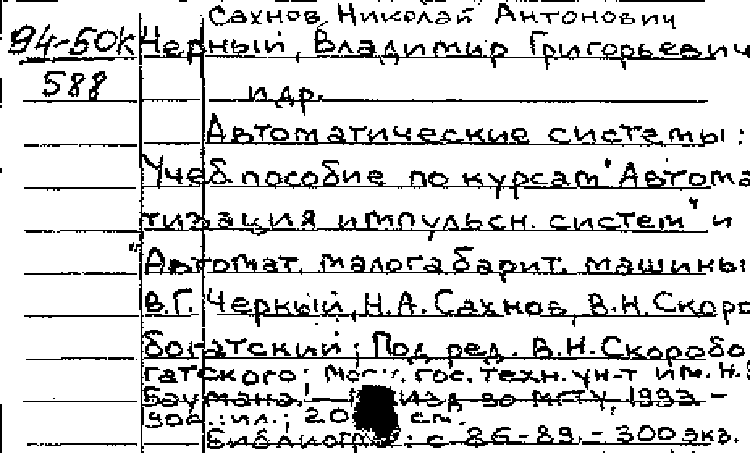 Сахнов, Николай Антонович
94-50к Черный, Владимир Григорьевич
588 и др.
Автоматические системы:
Учеб. пособие по курсам "Автома
тизация импульсн. систем" и
"Автомат. малогабарит. машины
В.Г. Черный, Н.А. Сахнов, В.Н. Скоро
богатский; Под ред. В.Н. Скоробо
гатского; Моск. гос. техн. ун-т им. Н.Э
Баумана. - Изд-во МГТУ, 1993 -
90с.: ил.; 20 см.
Библиогр.: с. 86-89. - 300 экз.